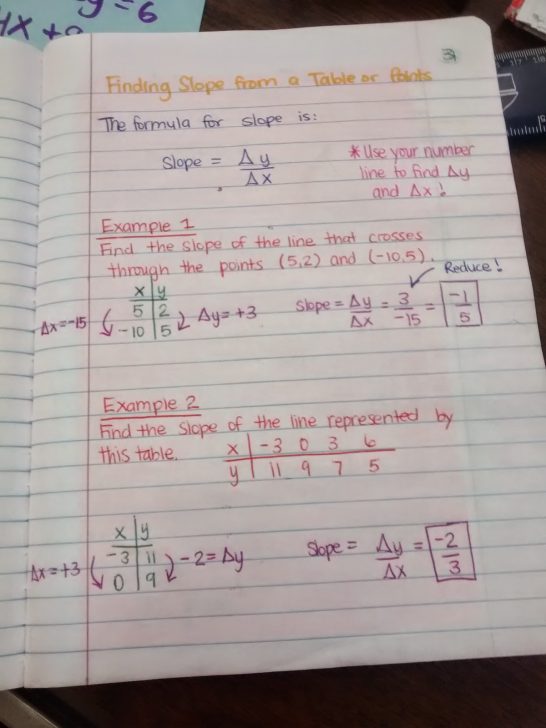 y=6
4x +
3
Finding Slope from a Table or Points
The formula for slope is:
Slope = Δy/Δx
*Use your number
line to find Δy
and Δx!
Example 1
Find the slope of the line that crosses
through the points (5,2) and (-10,5).
Reduce!
x | y
5 | 2
-10 | 5
Δx=-15
Δy=+3
Slope = Δy/Δx = 3/-15 = -1/5
Example 2
Find the slope of the line represented by
this table.
x | -3 0 3 6
y | 11 9 7 5
x | y
-3 | 11
0 | 9
Δx=+3
-2=Δy
Slope = Δy/Δx = -2/3